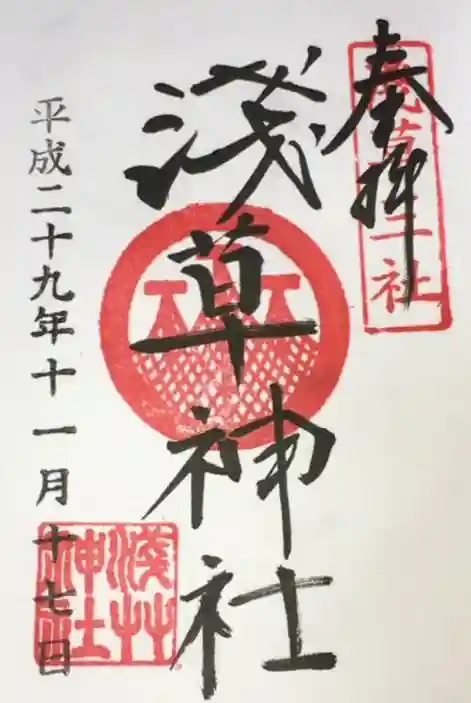 奉拝
浅草十二社
淺草神社
平成二十九年十一月十七日
淺草神社